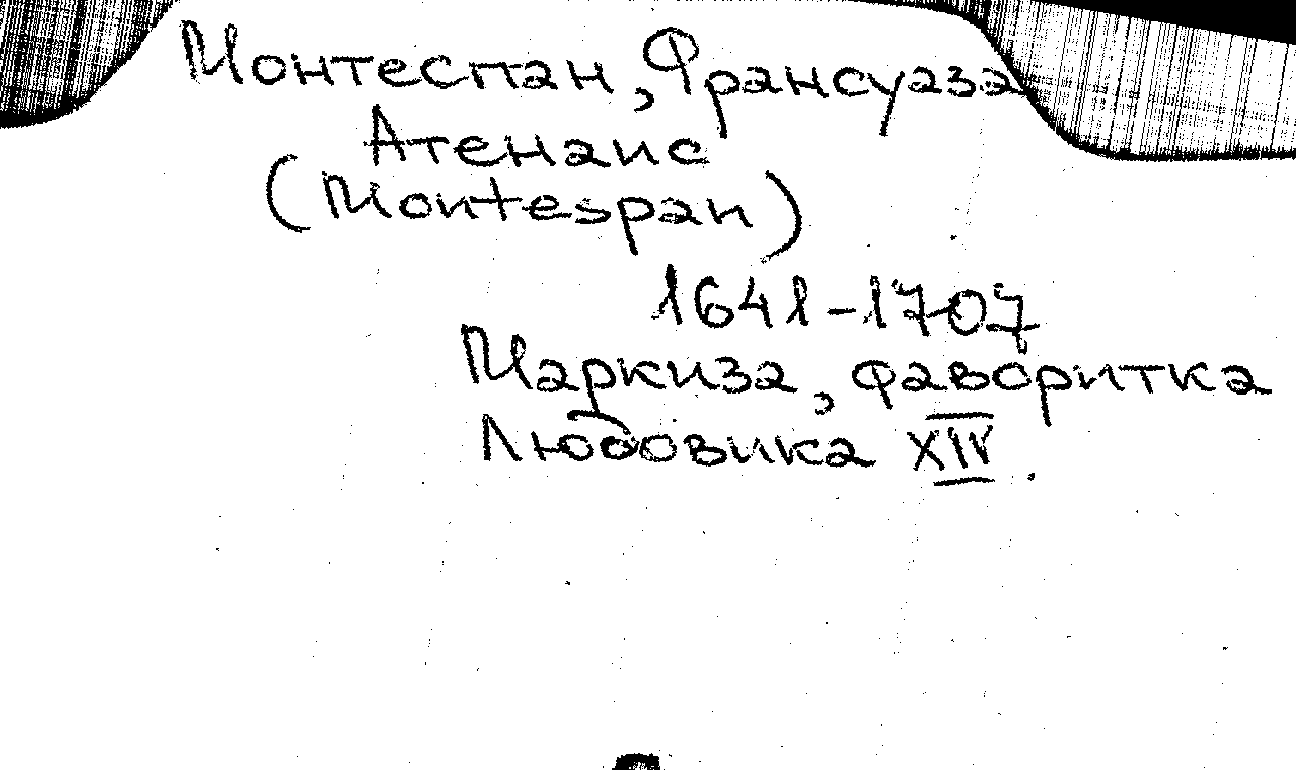 Монтеспан, Франсуаза
Атенаис
(Montespan)
1641-1707
Маркиза, фаворитка
Людовика XIV.